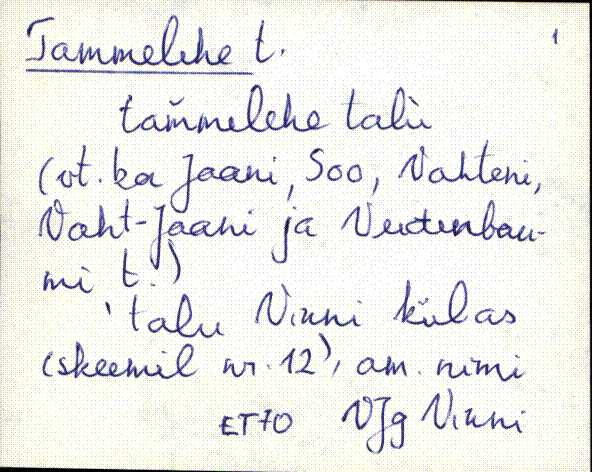 Tammelehe t. 1
tam̆melehe talu̬
(vt. ka Jaani, Soo, Vahteni,
Vaht-Jaani ja Veidenbau-
mi t.)
'talu Vinni külas
(skeemil nr. 12), am. nimi
ET70 VJg Vinni